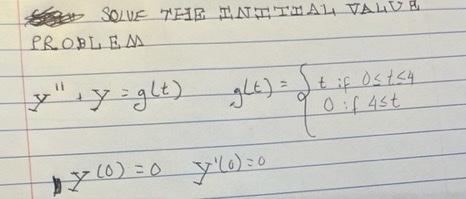 SOLVE THE INITIAL VALUE
PROBLEM
y'' + y = g(t) g(t) = { t if 0 ≤ t < 4
0 if 4 ≤ t
y(0) = 0 y'(0) = 0